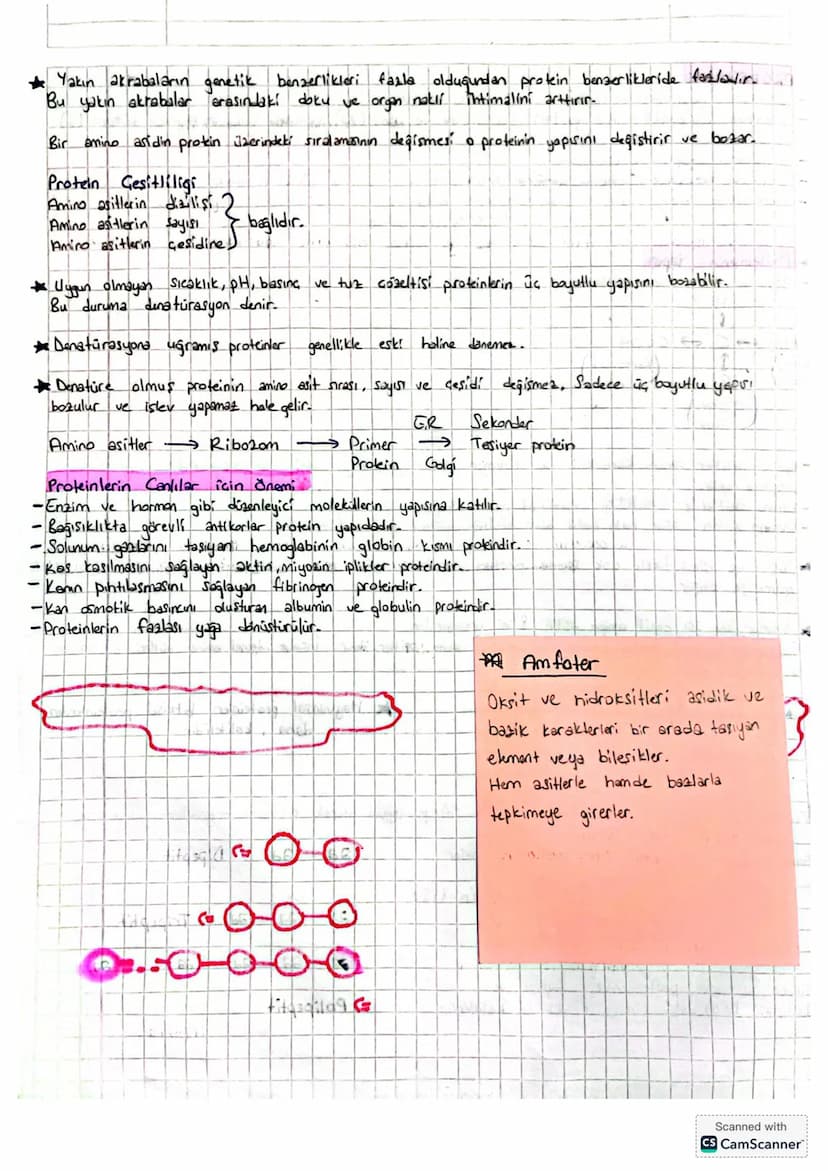 ★ Yakın akrabaların genetik benzerlikleri fazla olduğundan protein benzerlikleride fazladır.
Bu yakın akrabalar arasındaki doku ve organ nakli ihtimalini arttırır.
Bir amino asidin protein üzerindeki sıralamasının değişmesi o proteinin yapısını değiştirir ve bozar.
Protein Çeşitliliği
Amino asitlerin dizilişi
Amino asitlerin sayısı } bağlıdır.
Amino asitlerin çeşidine
★ Uygun olmayan sıcaklık, pH, basınç ve tuz çözeltisi proteinlerin üç boyutlu yapısını bozabilir.
Bu duruma denatürasyon denir.
★ Denatürasyona uğramış proteinler genellikle eski haline dönemez.
★ Denatüre olmuş proteinin amino asit sırası, sayısı ve çeşidi değişmez. Sadece üç boyutlu yapısı
bozulur ve işlev yapamaz hale gelir.
E.R Sekonder
Amino asitler → Ribozom → Primer → Tersiyer protein
Protein Golgi
Proteinlerin Canlılar için Önemi
- Enzim ve hormon gibi düzenleyici moleküllerin yapısına katılır.
- Bağışıklıkta görevli antikorlar protein yapıdadır.
- Solunum gazlarını taşıyan hemoglobinin globin kısmı proteindir.
- Kas kasılmasını sağlayan aktin, miyozin iplikler proteindir.
- Kanın pıhtılaşmasını sağlayan fibrinojen proteindir.
- Kan osmotik basıncını oluşturan albumin ve globulin proteindir.
- Proteinlerin fazlası yağa dönüştürülür.
Amfoter
Oksit ve hidroksitleri asidik ve
bazik karakterleri bir arada taşıyan
element veya bileşikler.
Hem asitlerle hemde bazlarla
tepkimeye girerler.
Dipeptit
Tripeptit
Polipeptit
Scanned with
CS CamScanner